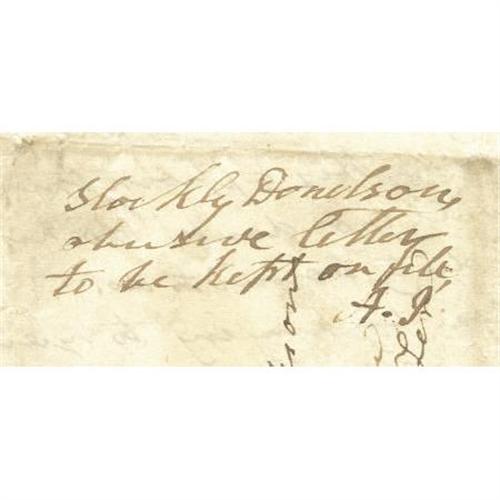 Stockly Donelson,
abusive letter
to be kept on file,
A. J.